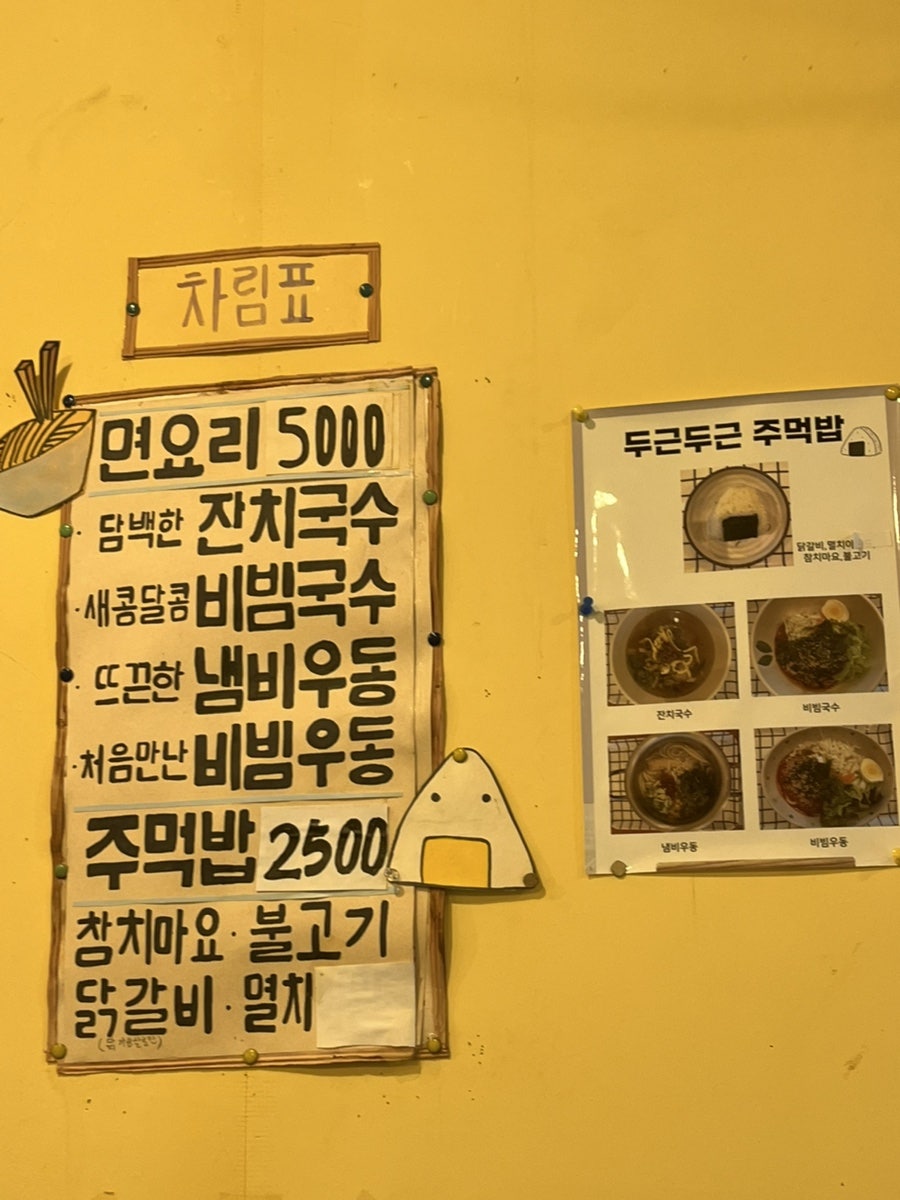 차림표
면요리 5000
· 담백한 잔치국수
· 새콤달콤 비빔국수
· 뜨끈한 냄비우동
· 처음만난 비빔우동
주먹밥 2500
참치마요 · 불고기
닭갈비 · 멸치
두근두근 주먹밥
닭갈비,멸치
참치마요,불고기
잔치국수 비빔국수
냄비우동 비빔우동